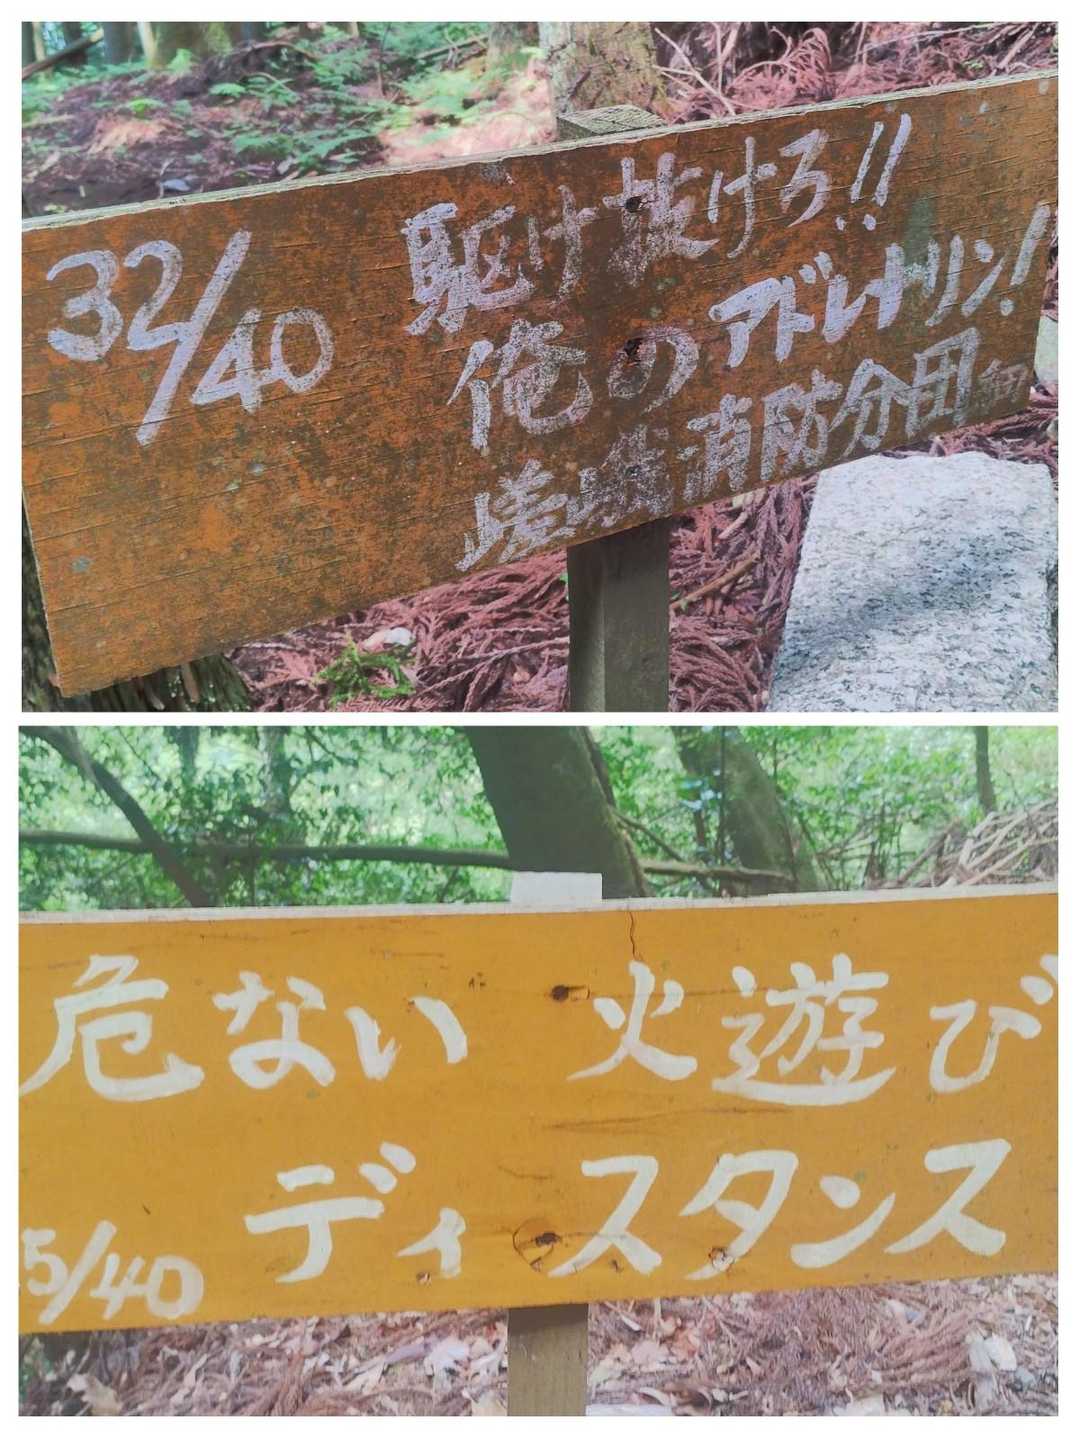 32/40
駆け抜けろ!!
俺のアドレナリン!
嵯峨消防分団
危ない 火遊び
ディスタンス
5/40